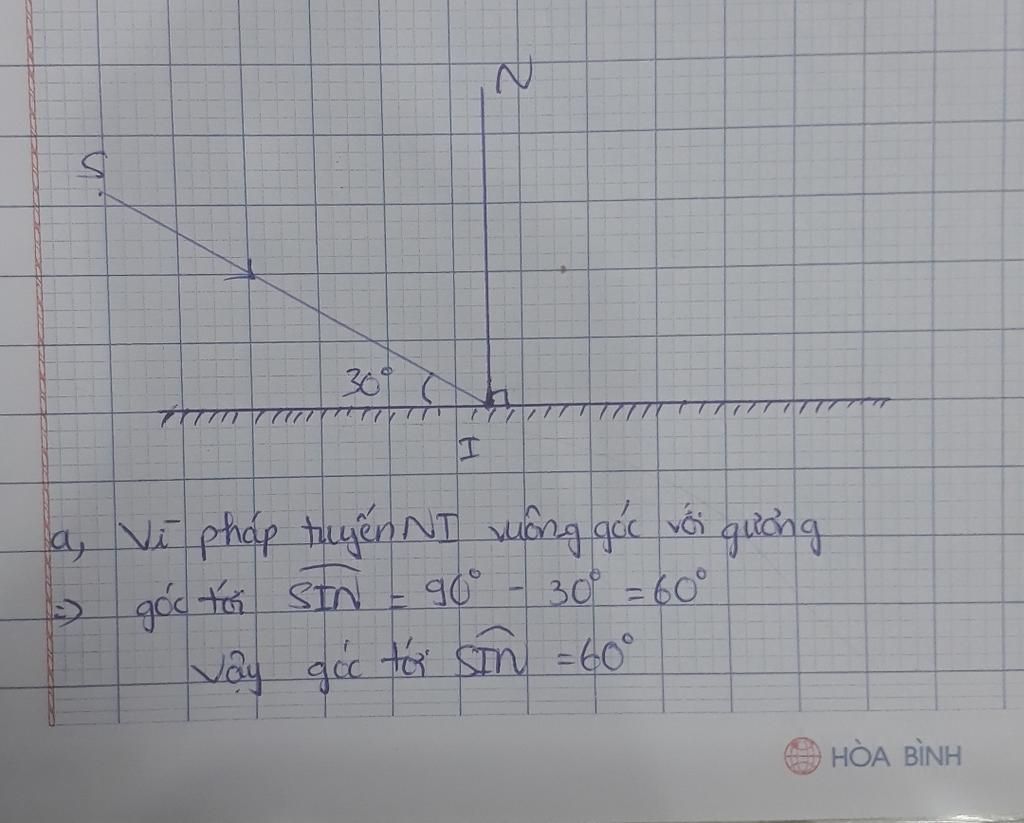 N
S
30°
I
a, Vì pháp tuyến NI vuông góc với gương
=> góc tới SIN = 90° - 30° = 60°
Vậy góc tới SIN = 60°
HÒA BÌNH